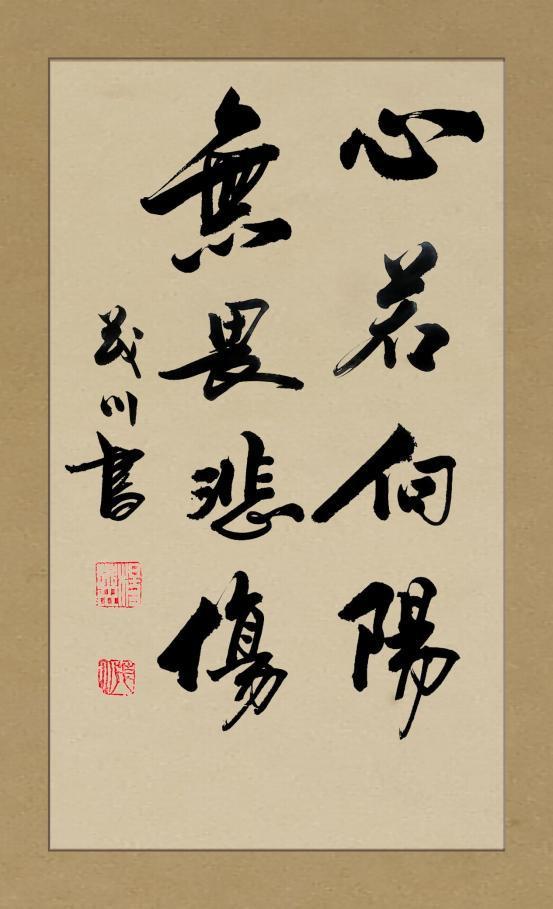 心若向陽
無畏悲傷
茂川書